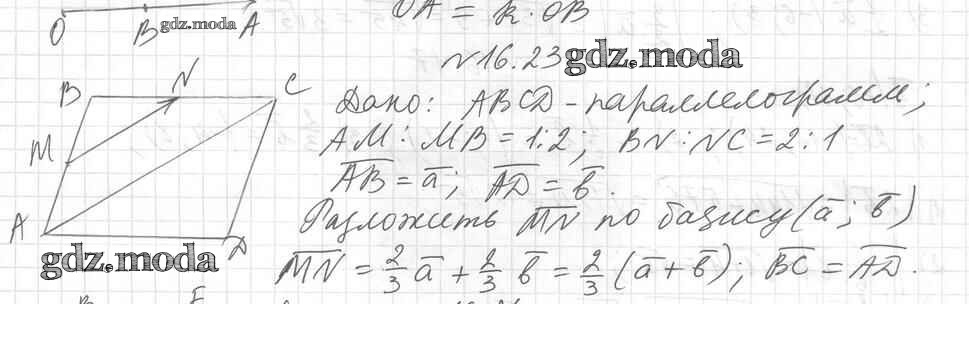 O B A gdz.moda
OA = k · OB
N16.23 gdz.moda
B N C
M
A D
Дано: ABCD - параллелограмм;
AM : MB = 1:2; BN : NC = 2:1
AB = a; AD = b.
Разложить MN по базису (a; b)
MN = 2/3 a + 2/3 b = 2/3 (a + b); BC = AD.
gdz.moda